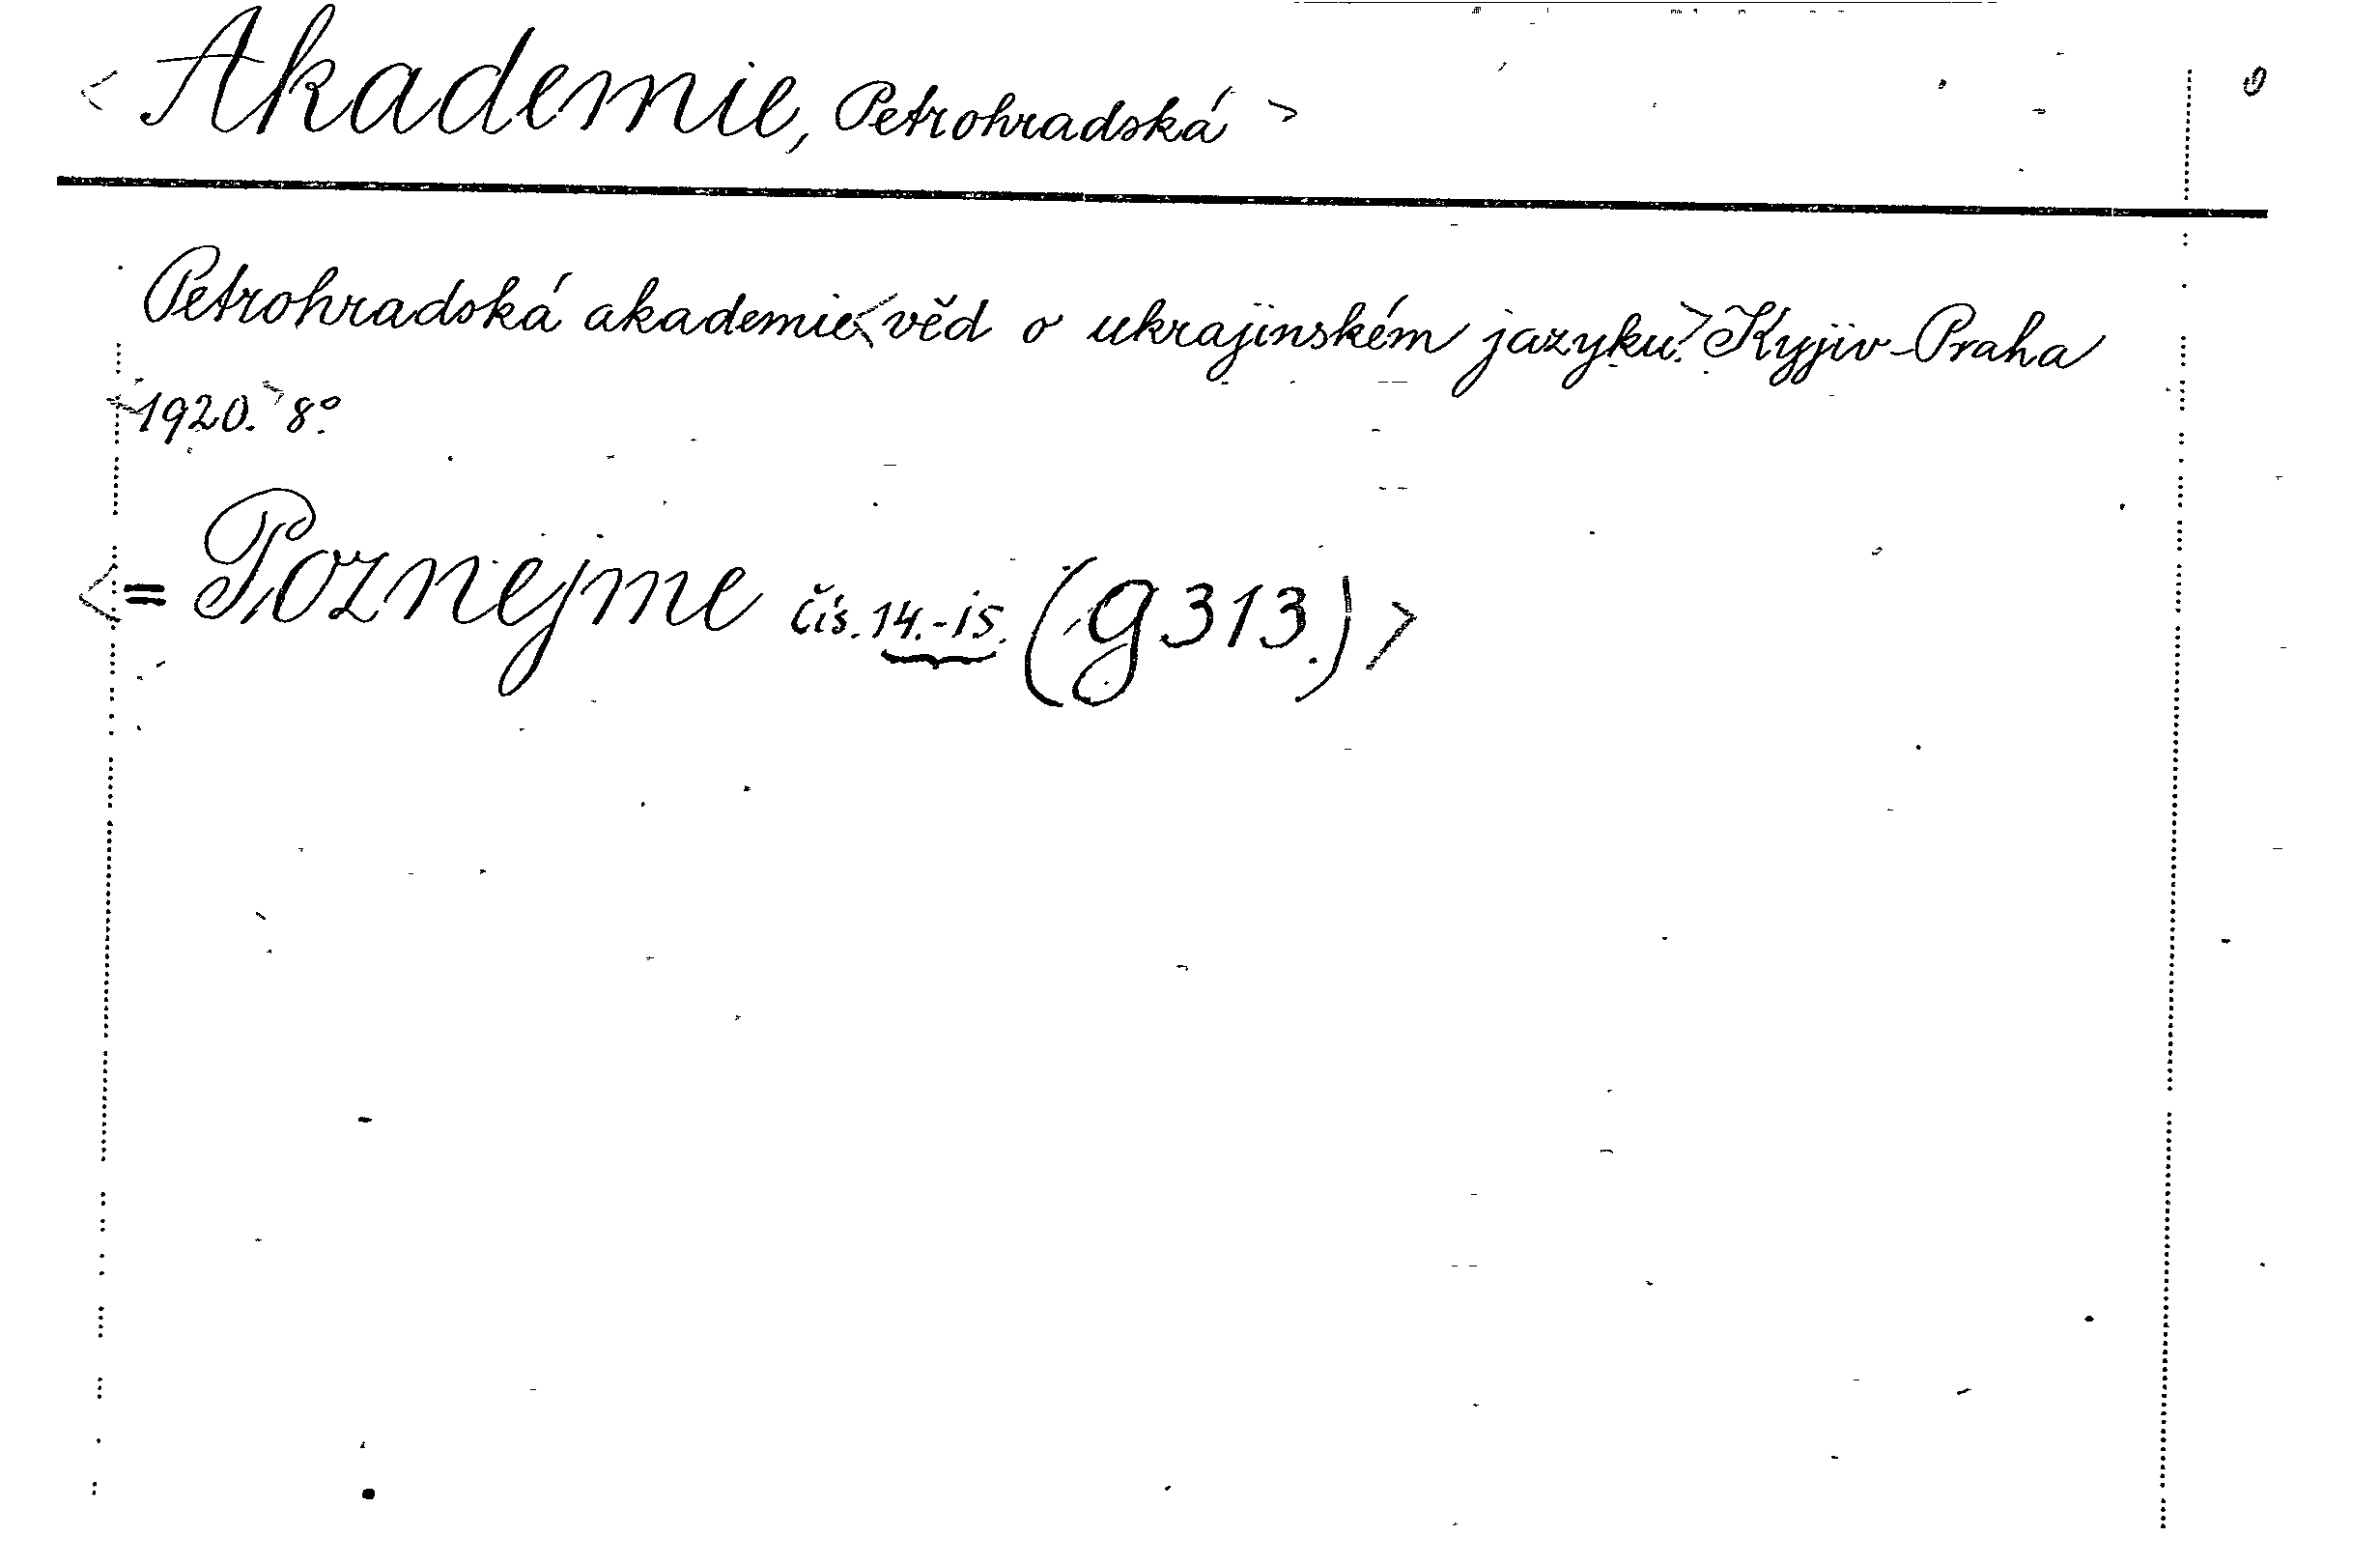 < Akademie, Petrohradská >
Petrohradská akademie < věd o ukrajinském jazyku. > Kyjiv-Praha
< 1920. > 8°.
< = Poznejme čís. 14.-15. (g 313.) >